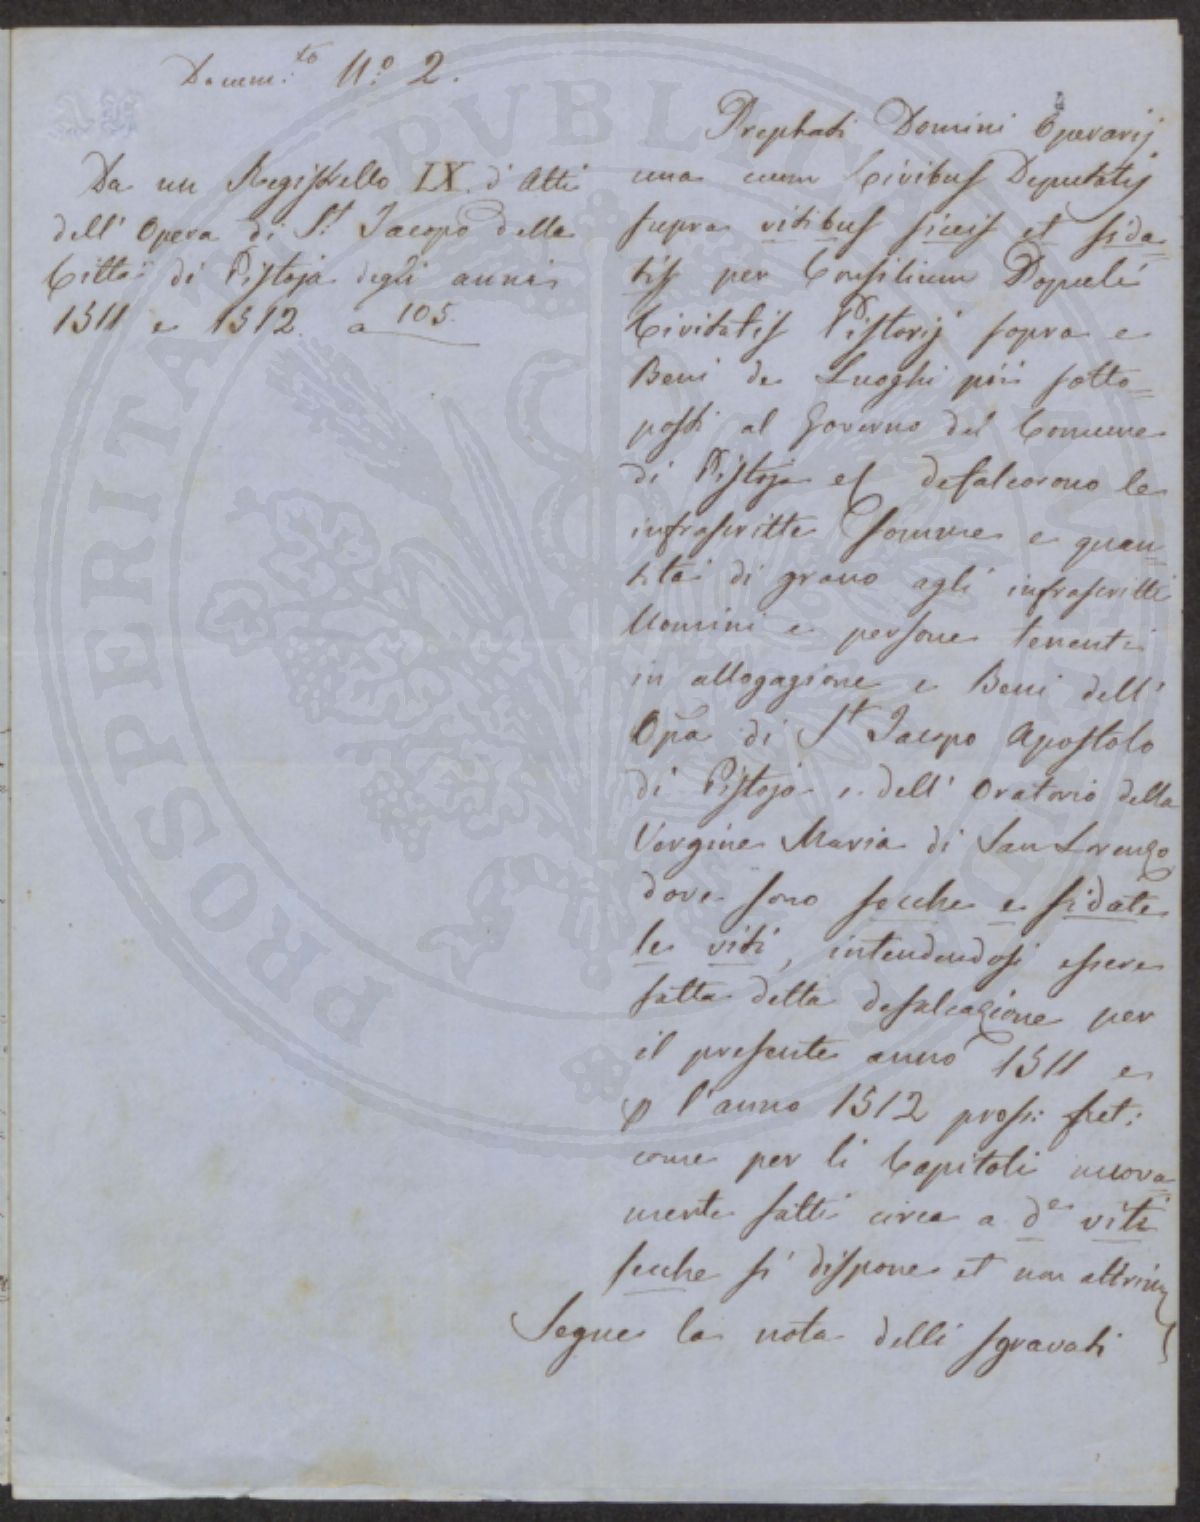 Docum.to N.o 2.
Da un Registrello IX d'Atti
dell' Opera di S.t Jacopo della
Città di Pistoja degli anni
1511 e 1512 a 105.
Prephati Domini Operarij
una cum Civibus Deputatis
supra vitibus siccis et sida=
tis per Consilium Populi
Civitatis Pistorij sopra e
Beni de Luoghi pii sotto=
posti al Governo del Comune
di Pistoja et defalcorono le
infrascritte somme e quan=
tità di grano agli infrascritti
Uomini e persone tenenti
in allogagione e Beni dell'
Opa di S.t Jacopo Apostolo
di Pistoja e dell' Oratorio della
Vergine Maria di San Lorenzo
dove sono secche e sidate
le viti, intendendosi essere
fatta detta defalcazione per
il presente anno 1511 e
p l'anno 1512 pross: fut:
come per li Capitoli nuova=
mente fatti circa a de viti
secche si dispone et non altrim
Segue la nota delli sgravati
PROSPERITATI PVBLICAE